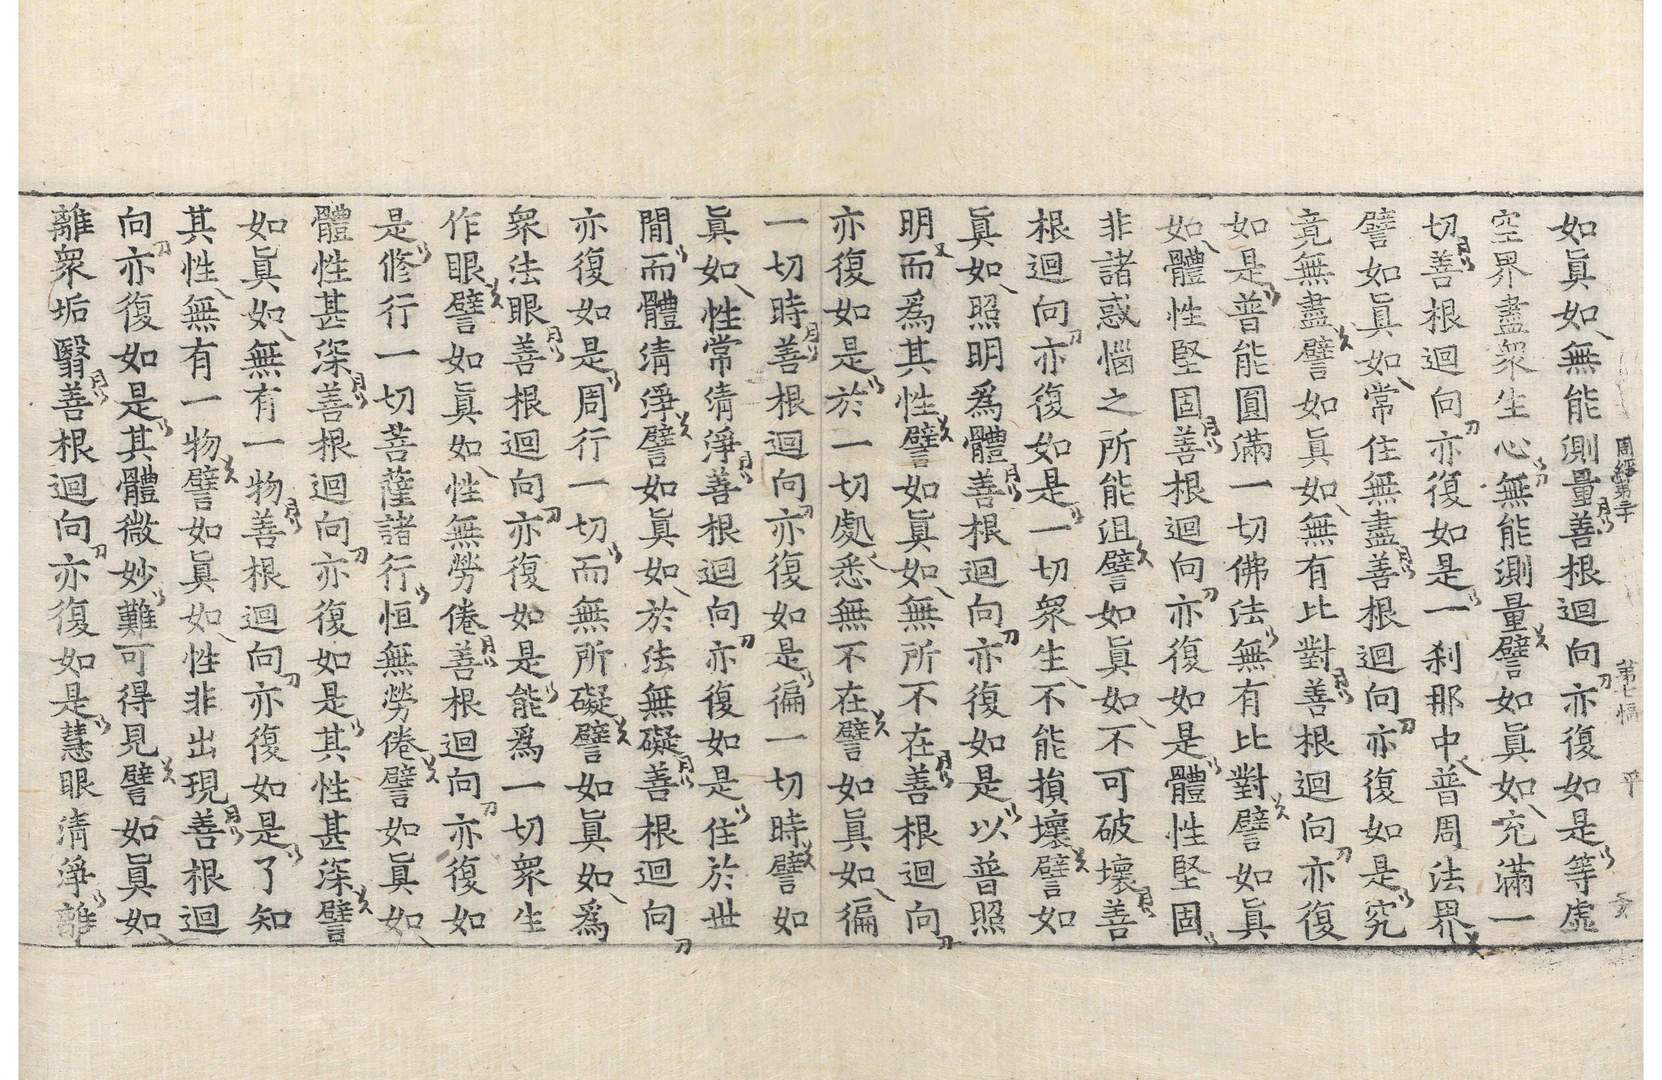 周經第三十 第七幅 平
如眞如無能測量善根迴向亦復如是等虛
空界盡衆生心無能測量譬如眞如充滿一
切善根迴向亦復如是一刹那中普周法界
譬如眞如常住無盡善根迴向亦復如是究
竟無盡譬如眞如無有比對善根迴向亦復
如是普能圓滿一切佛法無有比對譬如眞
如體性堅固善根迴向亦復如是體性堅固
非諸惑惱之所能沮譬如眞如不可破壞善
根迴向亦復如是一切衆生不能損壞譬如
眞如照明爲體善根迴向亦復如是以普照
明而爲其性譬如眞如無所不在善根迴向
亦復如是於一切處悉無不在譬如眞如徧
一切時善根迴向亦復如是徧一切時譬如
眞如性常清淨善根迴向亦復如是住於世
間而體清淨譬如眞如於法無礙善根迴向
亦復如是周行一切而無所礙譬如眞如爲
衆法眼善根迴向亦復如是能爲一切衆生
作眼譬如眞如性無勞倦善根迴向亦復如
是修行一切菩薩諸行恒無勞倦譬如眞如
體性甚深善根迴向亦復如是其性甚深譬
如眞如無有一物善根迴向亦復如是了知
其性無有一物譬如眞如性非出現善根迴
向亦復如是其體微妙難可得見譬如眞如
離衆垢翳善根迴向亦復如是慧眼清淨離